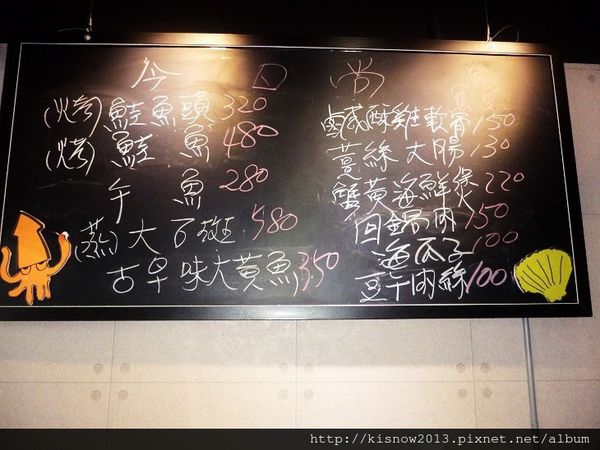 今日尚
(烤)鮭魚頭320
(烤)鮭魚480
午魚280
(蒸)大石斑580
古早味大黃魚350
鹹酥雞軟骨150
薑絲大腸130
蟹黃海鮮煲220
回鍋肉150
海瓜子100
豆干肉絲100
http://kisnow2013.pixnet.net/album